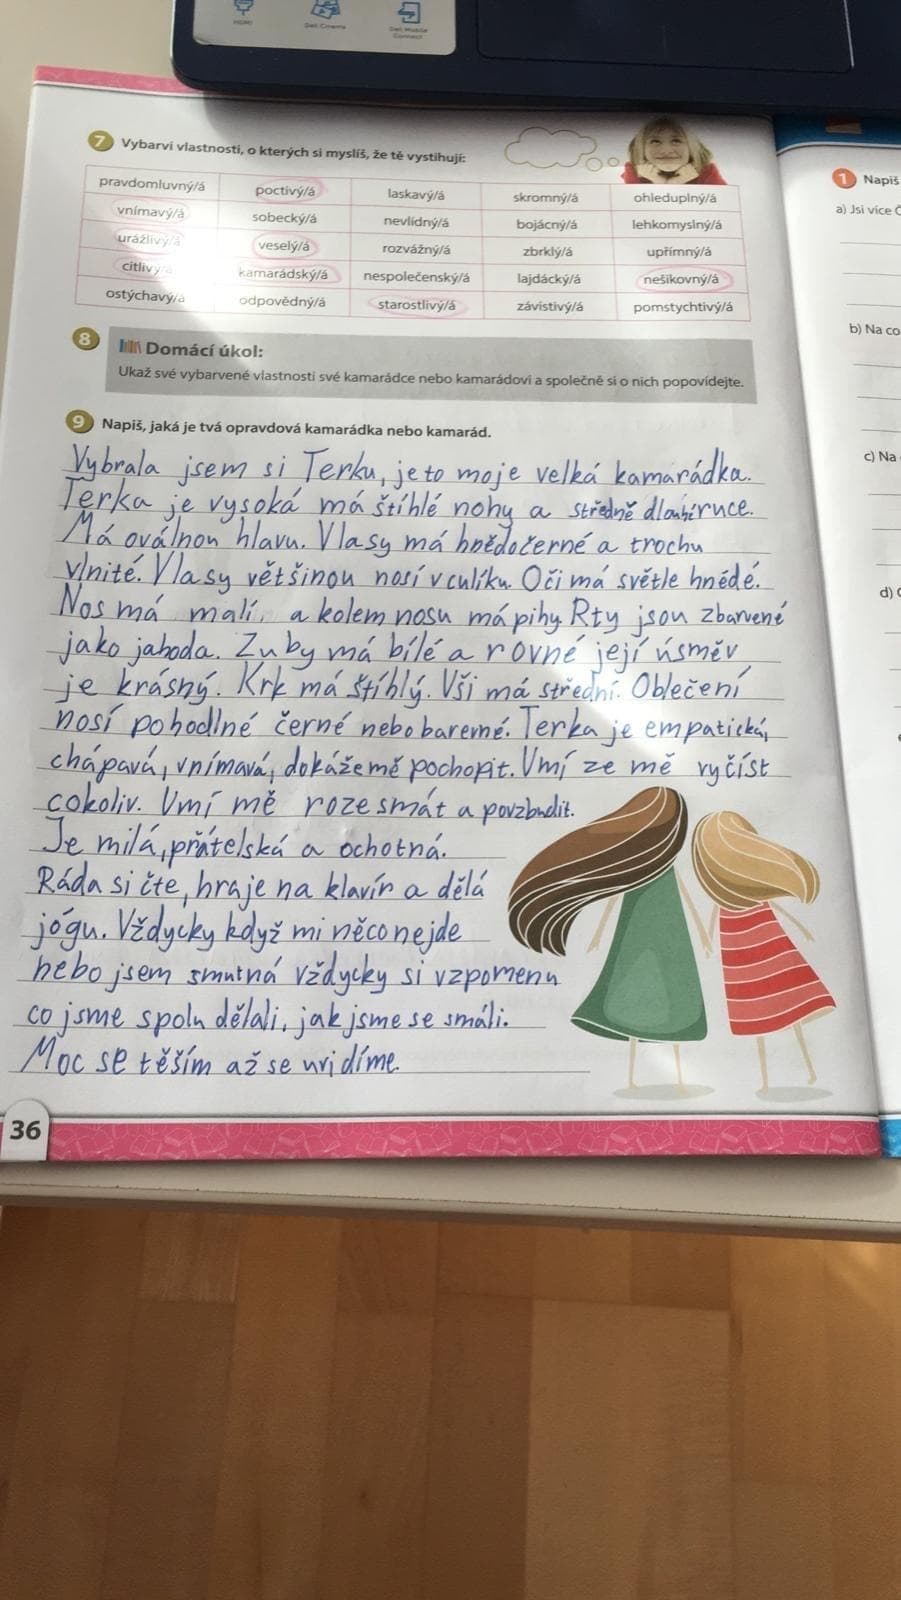 HDMI
Dell Cinema
Dell Mobile
Connect
7 Vybarvi vlastnosti, o kterých si myslíš, že tě vystihují:
pravdomluvný/á poctivý/á laskavý/á skromný/á ohleduplný/á
vnímavý/á sobecký/á nevlídný/á bojácný/á lehkomyslný/á
urážlivý/á veselý/á rozvážný/á zbrklý/á upřímný/á
citlivý/á kamarádský/á nespolečenský/á lajdácký/á nešikovný/á
ostýchavý/á odpovědný/á starostlivý/á závistivý/á pomstychtivý/á
8 Domácí úkol:
Ukaž své vybarvené vlastnosti své kamarádce nebo kamarádovi a společně si o nich popovídejte.
9 Napiš, jaká je tvá opravdová kamarádka nebo kamarád.
Vybrala jsem si Terku, je to moje velká kamarádka.
Terka je vysoká má štíhlé nohy a středně dlouhé ruce.
Má oválnou hlavu. Vlasy má hnědočerné a trochu
vlnité. Vlasy většinou nosí v culíku. Oči má světle hnědé.
Nos má malí, a kolem nosu má pihy Rty jsou zbarvené
jako jahoda. Zuby má bílé a rovné její úsměv
je krásný. Krk má štíhlý. Vši má střední. Oblečení
nosí pohodlné černé nebo barevné. Terka je empatická,
chápavá, vnímavá, dokáže mě pochopit. Umí ze mě vyčíst
cokoliv. Umí mě rozesmát a povzbudit.
Je milá, přátelská a ochotná.
Ráda si čte, hraje na klavír a dělá
jógu. Vždycky když mi něco nejde
nebo jsem smutná vždycky si vzpomenu
co jsme spolu dělali, jak jsme se smáli.
Moc se těším až se uvidíme.
36
1 Napiš
a) Jsi více
b) Na co
c) Na
d)